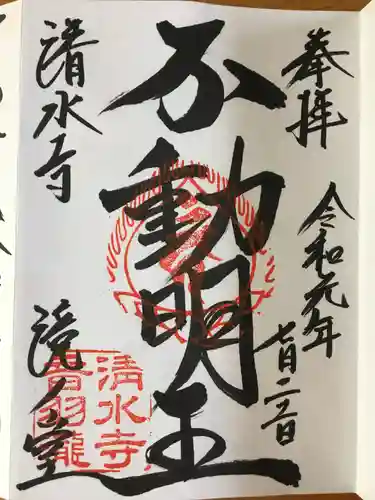 奉拝
令和元年
七月二六日
不動明王
清水寺
滝ノ堂
清水寺
音羽瀧